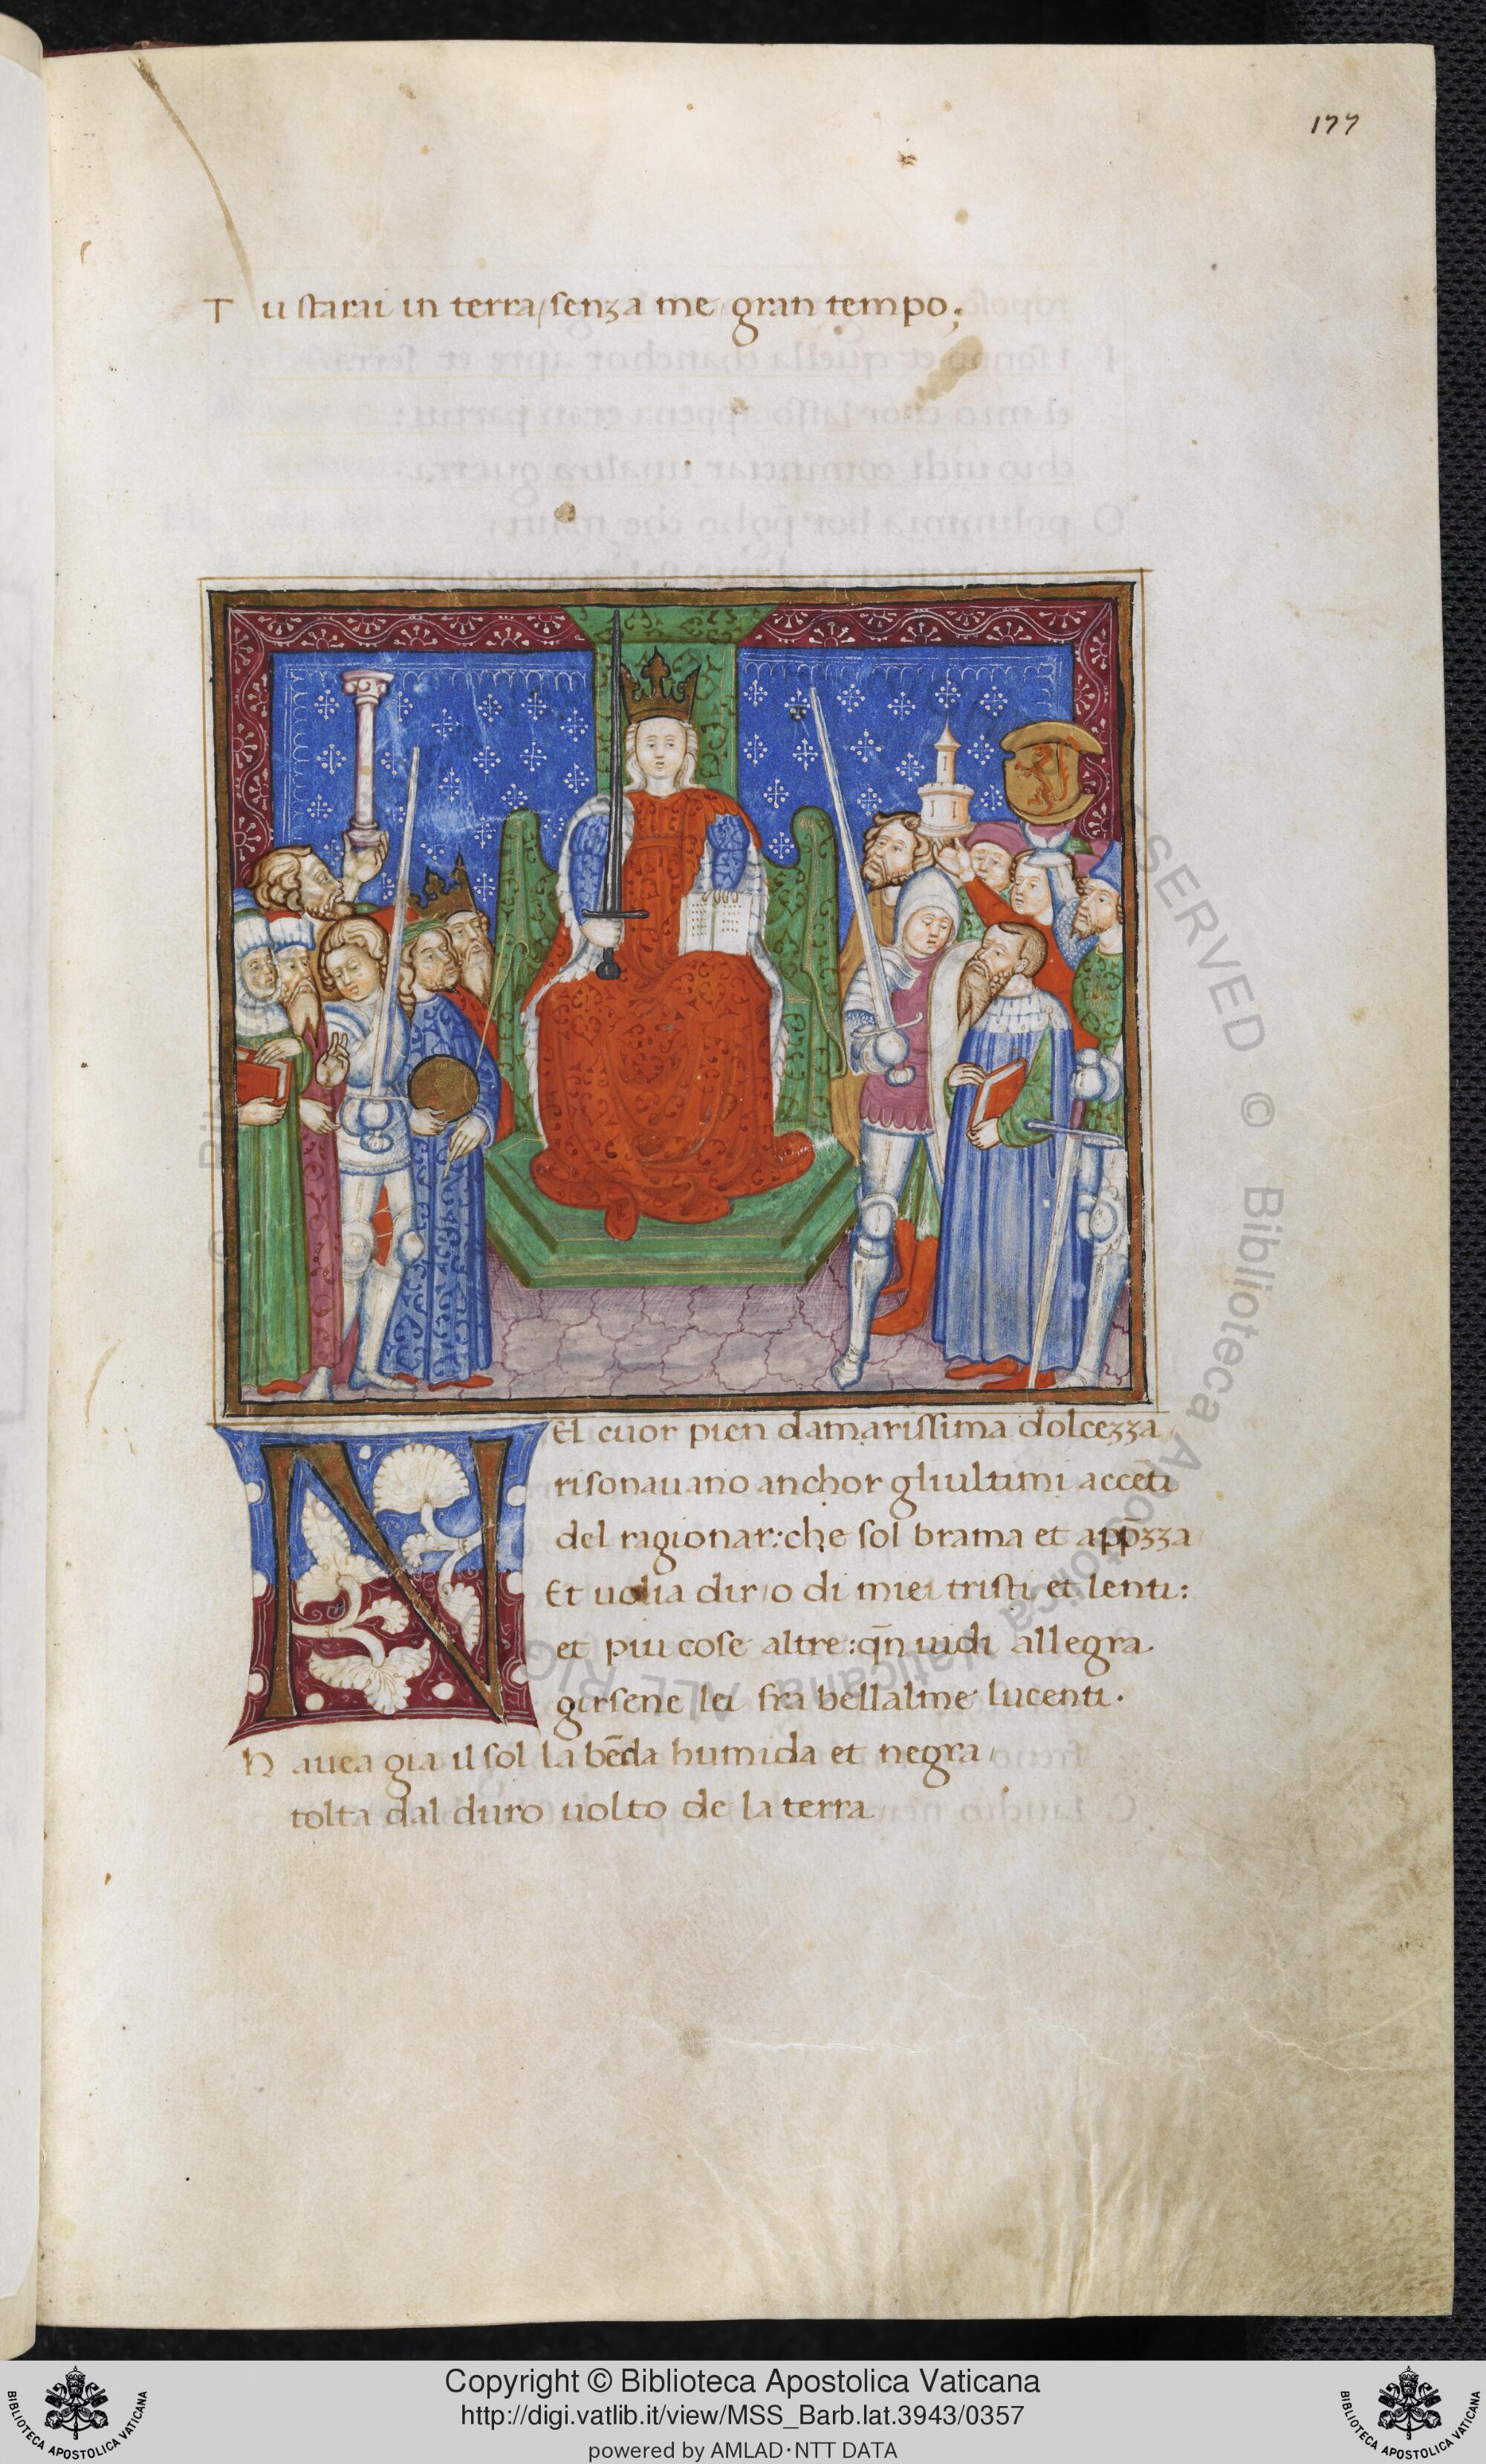 177
Tu starai in terra/senza me gran tempo;
NEl cuor pien damarissima dolcezza/
risonauano anchor gliultimi accēti
del ragionar:che sol brama et app̄zza/
Et uolia dir/o di miei tristi et lenti:
et piu cose altre:qn̄ uidi allegra
girsene lei fra bellalme lucenti.
Hauea gia il sol la bēda humida et negra/
tolta dal duro uolto de la terra
Copyright © Biblioteca Apostolica Vaticana
http://digi.vatlib.it/view/MSS_Barb.lat.3943/0357
powered by AMLAD·NTT DATA
BIBLIOTECA APOSTOLICA VATICANA
BIBLIOTECA APOSTOLICA VATICANA